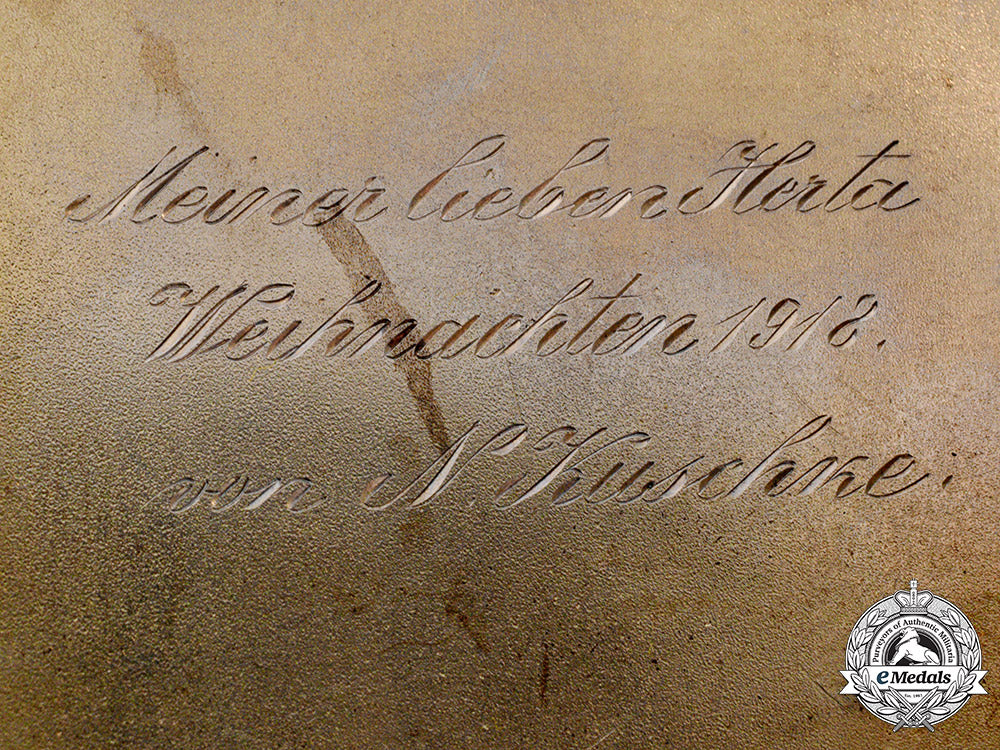 Meiner lieben Herta
Weihnachten 1918.
von N. Kuschke.
Purveyors of Authentic Militaria
eMedals